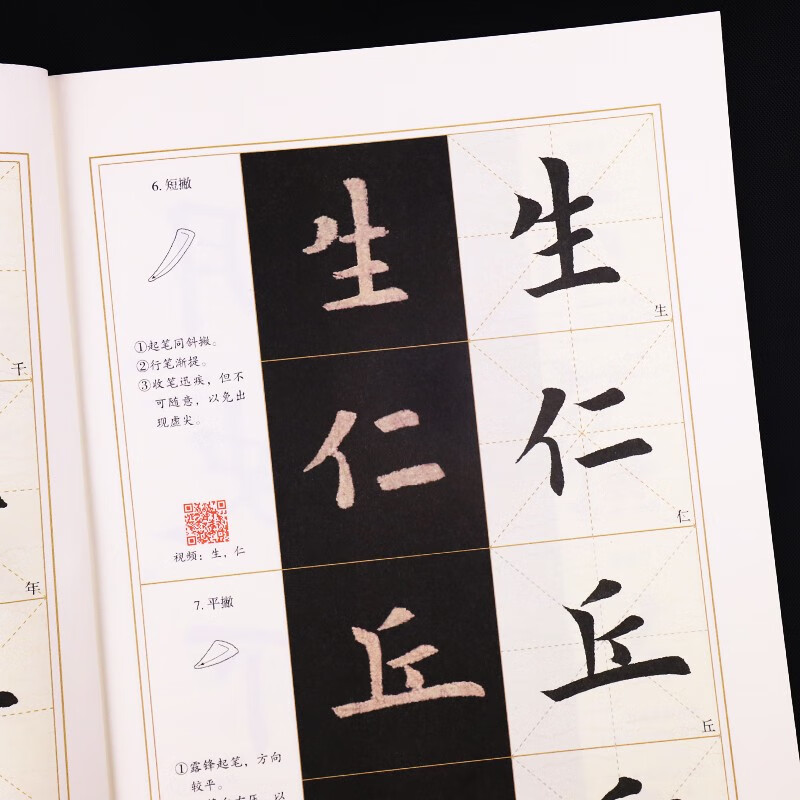 干
年
6. 短撇
①起笔同斜撇。
②行笔渐提。
③收笔迅疾，但不
可随意，以免出
现虚尖。
视频：生，仁
生
生
生
仁
仁
仁
7. 平撇
①露锋起笔，方向
较平。
丘
丘
丘